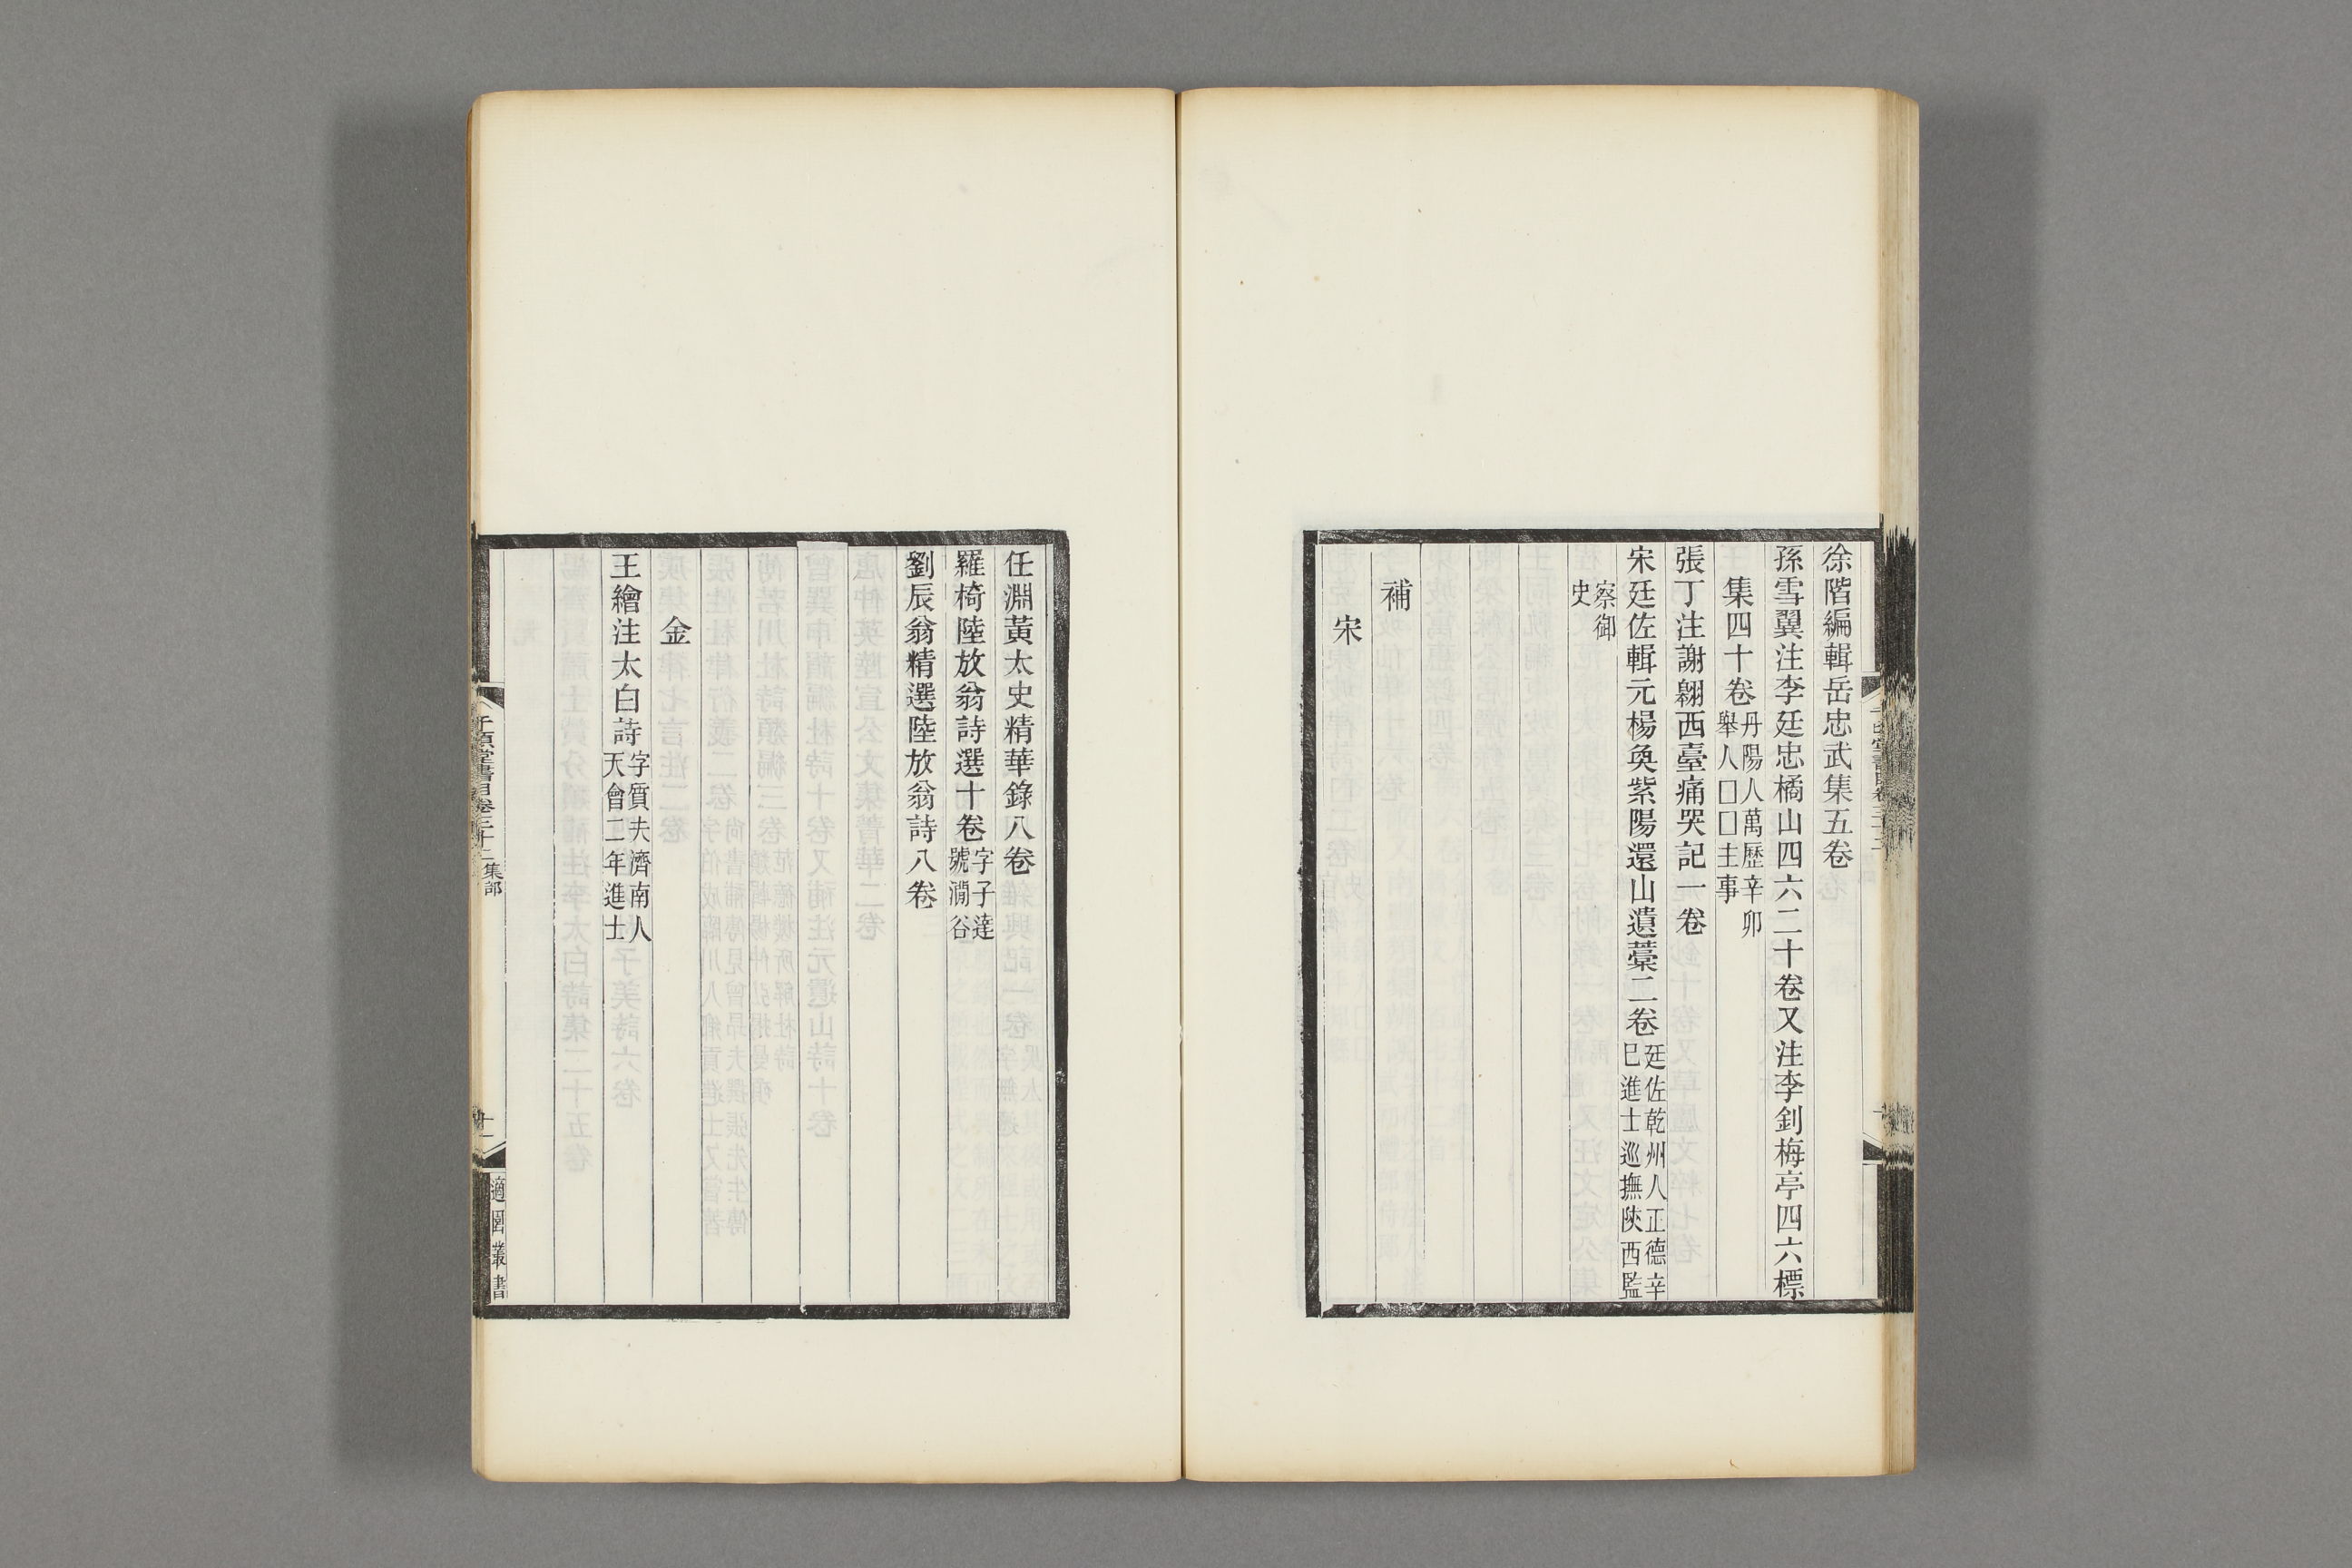 徐階編輯岳忠武集五卷
孫雪翼注李廷忠橘山四六二十卷又注李劉梅亭四六標
集四十卷丹陽人萬歷辛卯舉人□□主事
張丁注謝翱西臺痛哭記一卷
宋廷佐輯元楊奐紫陽還山遺藁二卷廷佐乾州人正德辛巳進士巡撫陝西監
察御史
補
宋
任淵黃太史精華錄八卷
羅椅陸放翁詩選十卷字子達號澗谷
劉辰翁精選陸放翁詩八卷
金
王繪注太白詩字質夫濟南人天會二年進士
千頃堂書目卷三十二集部
十一
適園叢書